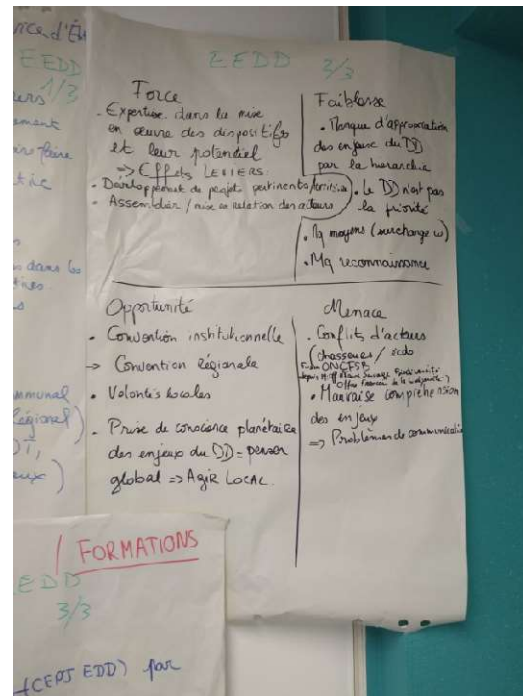 EEDD 3/3
Force
- Expertise dans la mise
en œuvre des dispositifs
et leur potentiel
=> Effets LEVIERS
- Développement de projets pertinents/
- Assembler / mise en relation des acteurs
Faiblesse
- Manque d'appropriation
des enjeux du DD
par la hierarchie
• Le DD n'est pas
la priorité
• Mq moyens (surcharge
• Mq reconnaissance
Opportunité
• Convention institutionnelle
-> Convention Régionale
• Volontés locales
- Prise de conscience planétaire
des enjeux du DD = penser
global => Agir LOCAL.
Menace
• Conflits d'acteurs
(chasseurs /
ONCFS
• Mauvaise compréhension
des enjeux
=> Problèmes de
EEDD
1/3
dans les
FORMATIONS
EEDD
3/3
EDD) par